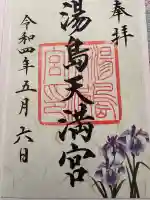 奉拝
湯島天満宮
令和四年五月六日